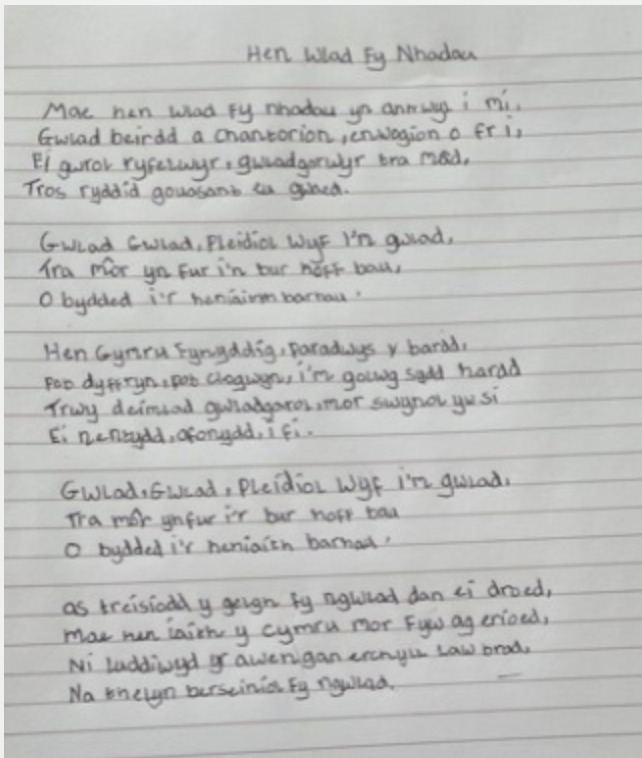 Hen Wlad Fy Nhadau
Mae hen wlad fy nhadau yn annwyg i mi,
Gwlad beirdd a chantorion, enwogion o fri,
Ei gwrol ryfelwyr, gwladgarwyr tra mad,
Tros ryddid gollasant eu gwaed.
Gwlad Gwlad, Pleidiol Wyf i'n gwlad,
Tra môr yn fur i'n bur hoff bau,
O bydded i'r barhau.
Hen Gymru Fynyddig, paradwys y bardd,
Pob dyffryn, pob clogwyn, i'm golwg sydd hardd
Trwy deimlad gwladgarol, mor swynol yw si
Ei nentydd, afonydd, i fi.
Gwlad, Gwlad, Pleidiol Wyf i'n gwlad,
Tra môr yn fur i'r bur hoff bau
O bydded i'r heniaith barhau.
os treisiodd y gelyn fy ngwlad dan ei droed,
Mae hen iaith y Cymru mor fyw ag erioed,
Ni luddiwyd yr awen gan erchyll law brad,
Na thelyn berseiniol fy ngwlad.